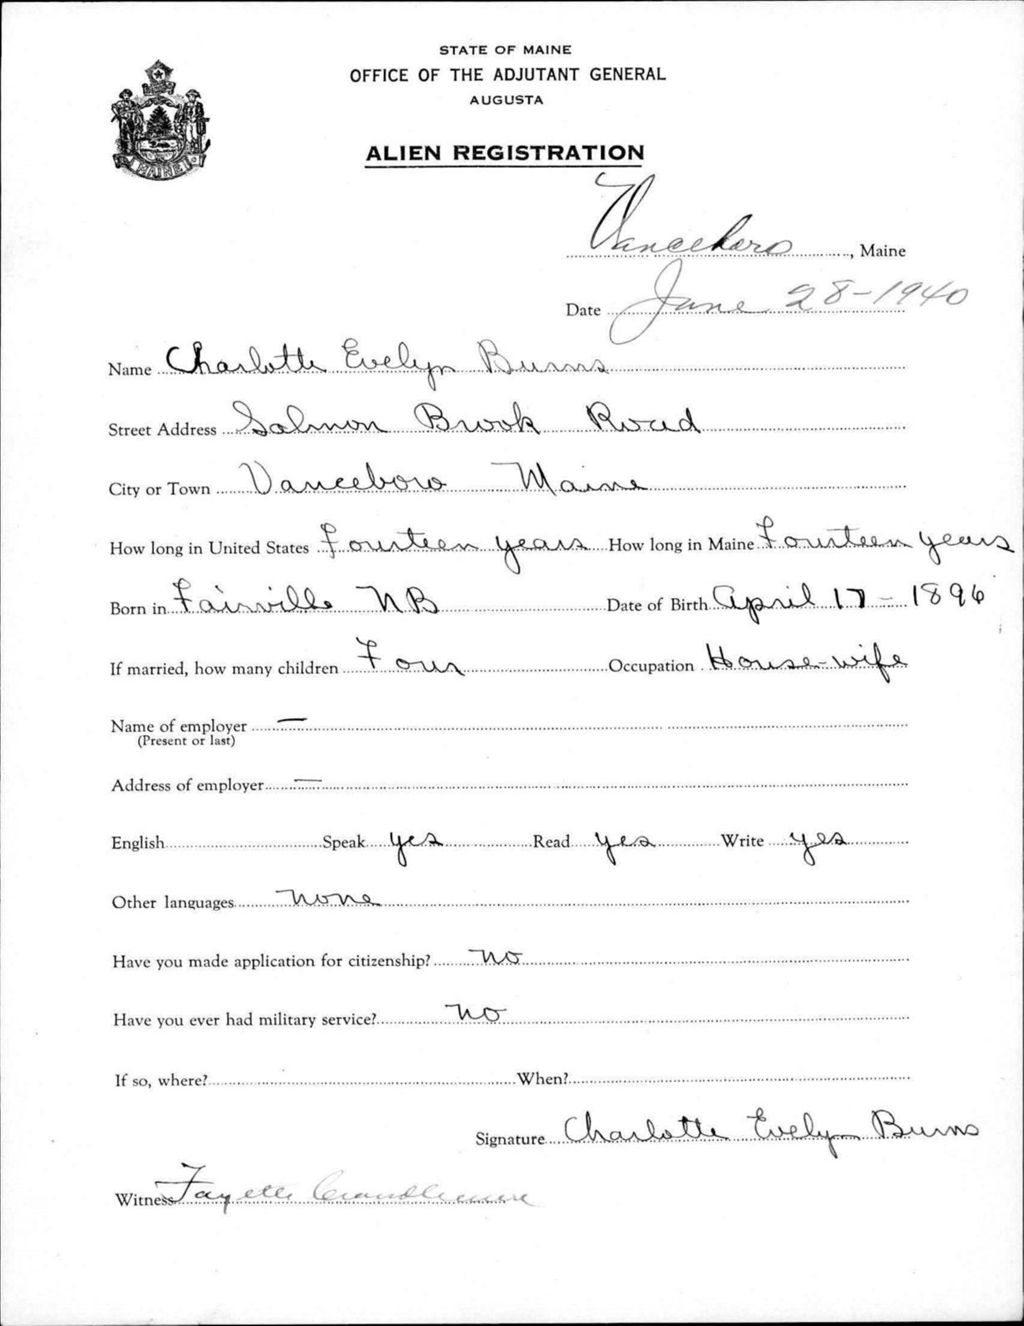 STATE OF MAINE
OFFICE OF THE ADJUTANT GENERAL
AUGUSTA
ALIEN REGISTRATION
MAINE
Vanceboro, Maine
Date June 28-1940
Name Charlotte Evelyn Burns
Street Address Salmon Brook Road
City or Town Vanceboro Maine
How long in United States Fourteen years How long in Maine Fourteen years
Born in Fairville NB Date of Birth April 17 - 1896
If married, how many children Four Occupation House-wife
Name of employer —
(Present or last)
Address of employer —
English Speak yes Read yes Write yes
Other languages none
Have you made application for citizenship? no
Have you ever had military service? no
If so, where? When?
Signature Charlotte Evelyn Burns
Witness Fayette